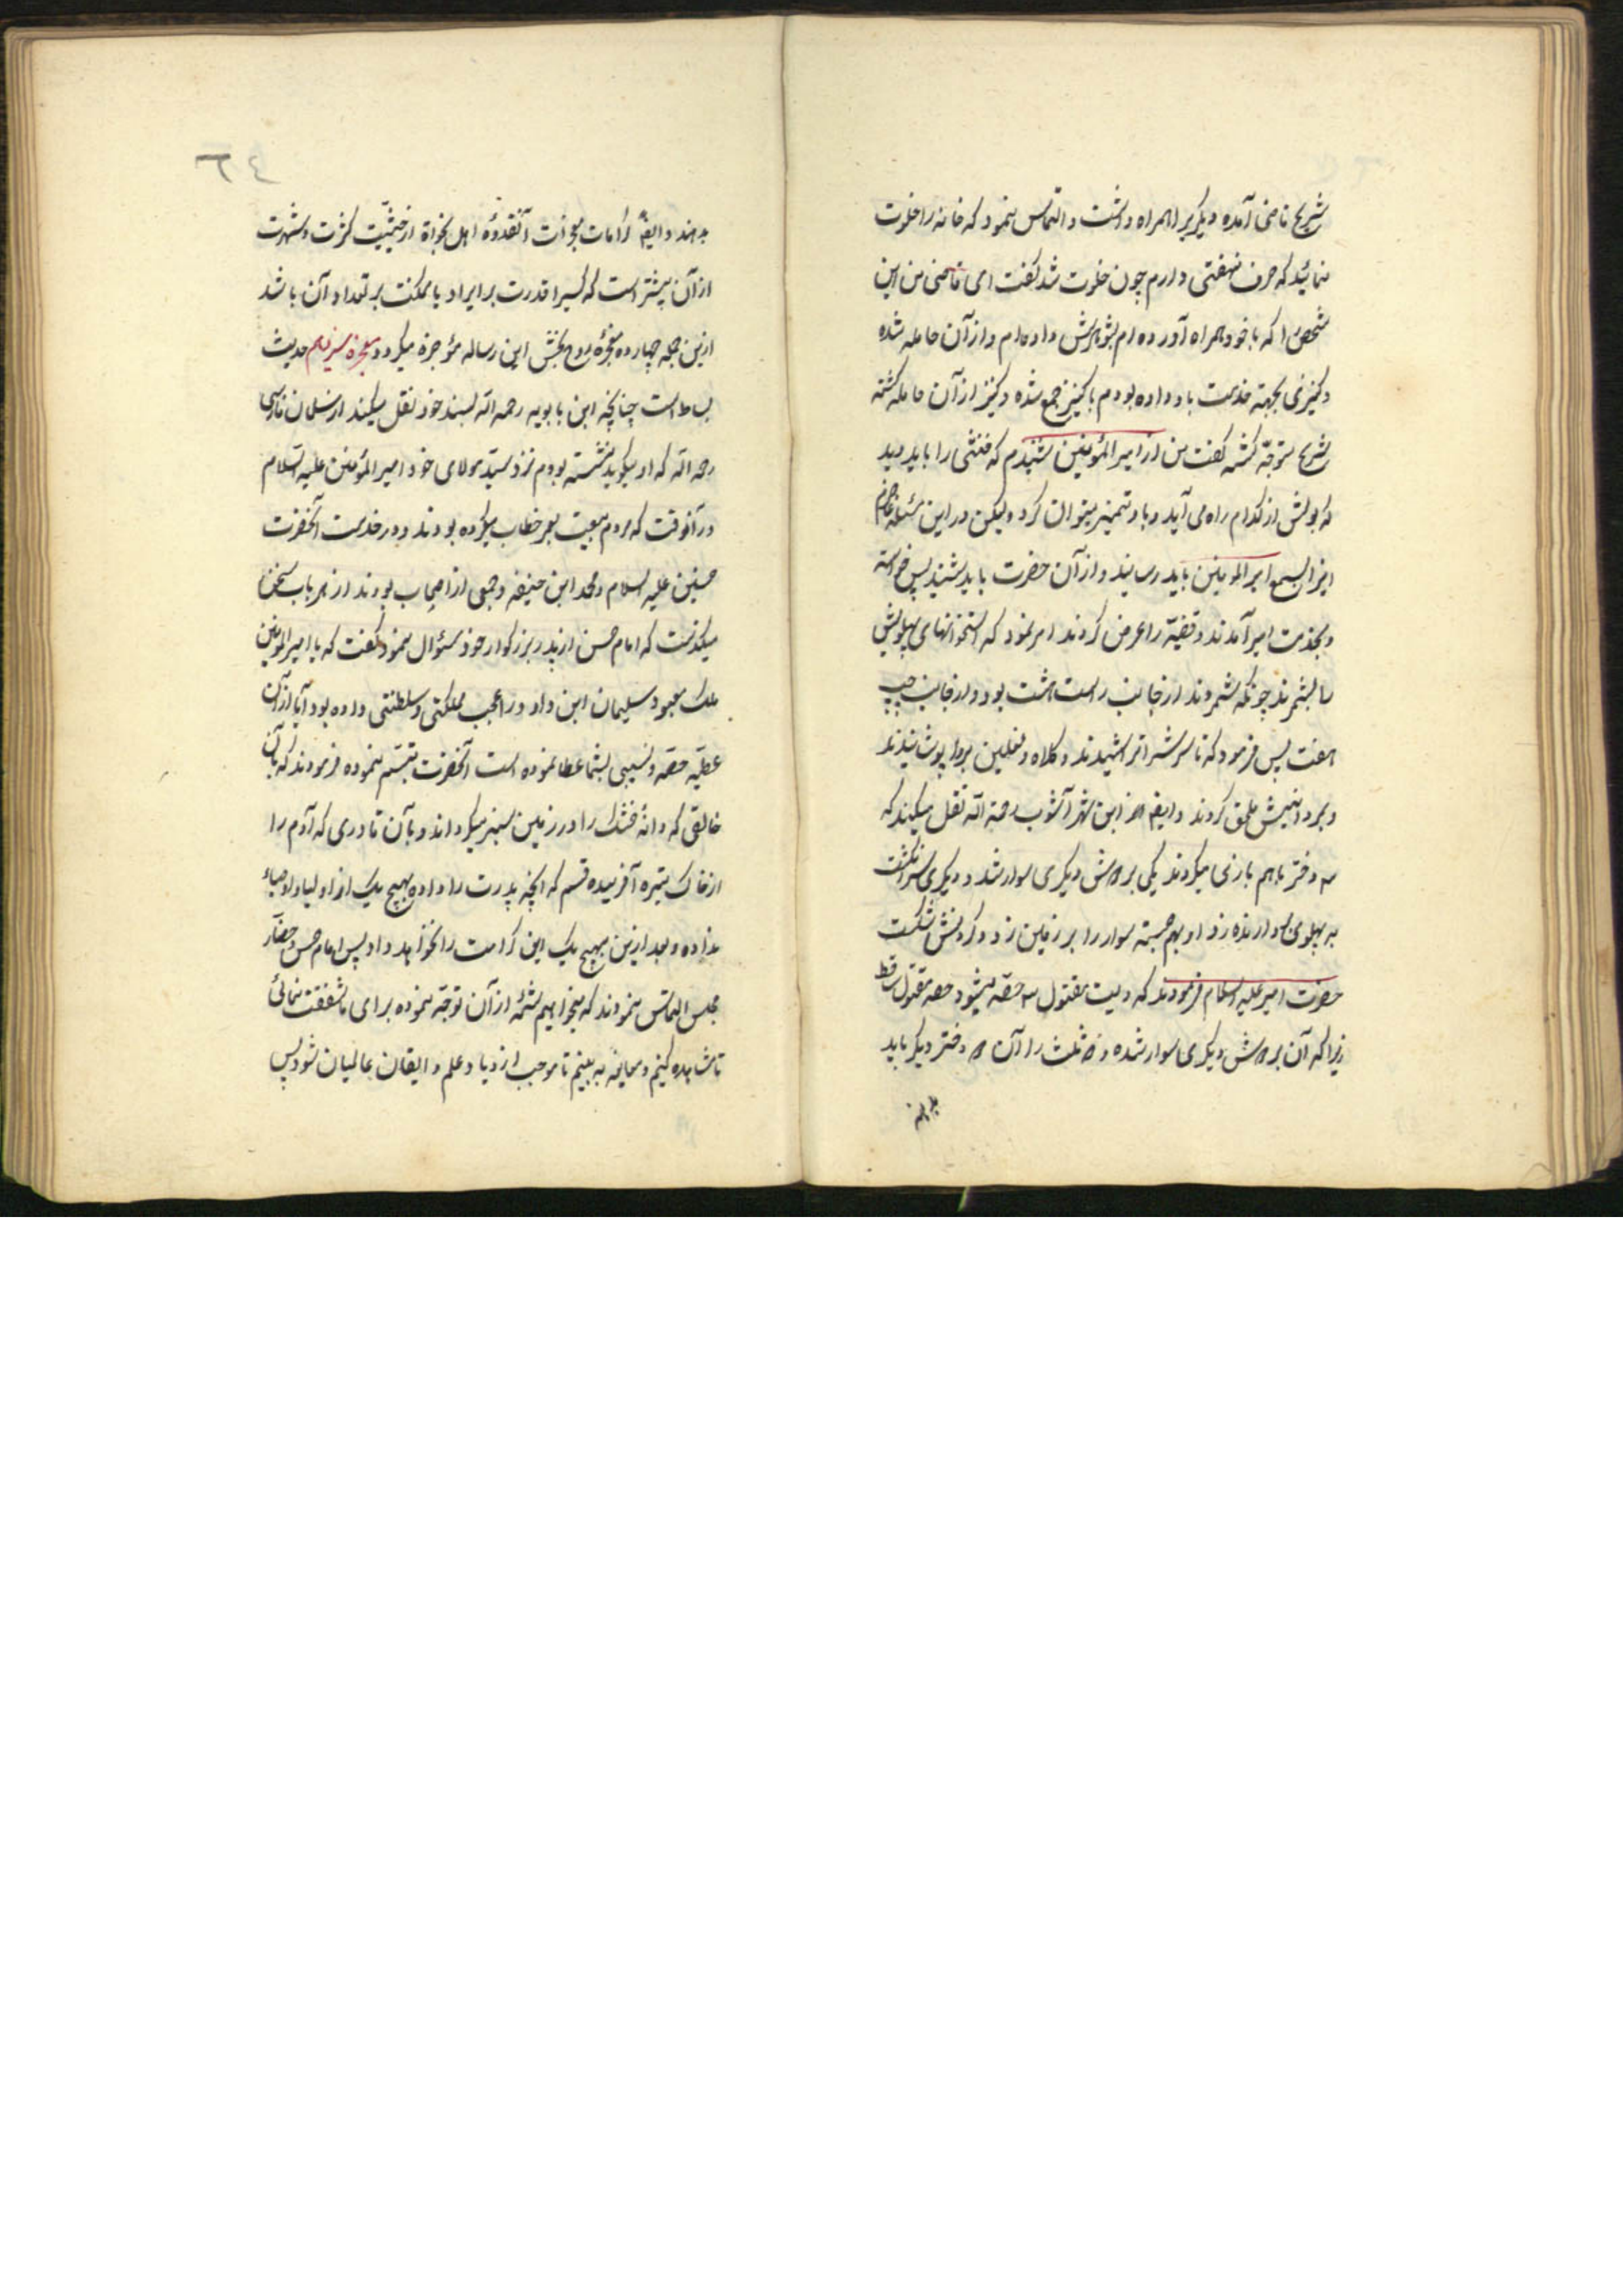 شریح قاضی آمده دیگریرا همراه داشت و التماس نمود که خانه را خلوت
نمائید که حرف نهفتی دارم چون خلوت شد گفت ای قاضی من این
شخص را که با خود همراه آورده ام بشوهرش داده‌ام و از آن حامله شده
و کنیزی بجهة خدمت باو داده بودم با کنیز جمع شده و کنیز از آن حامله گشته
شریح متوجّه گشته گفت من از امیرالمؤمنین شنیدم که خنثی را باید دید
که بولش از کدام راه می آید و باو تمیز میتوان کرد ولیکن در این مسئله عاجزم
اینرا بسمع امیرالمومنین باید رسانید و از آن حضرت باید شنید پس برخواسته
و بخدمت امیر آمدند و قضیّه را عرض کردند امر نمود که استخوانهای پهلویش
را بشمرند چونکه شمردند از جانب راست هشت بود و از جانب چپ
هفت پس فرمود که تا سرش را تراشیدند و کلاه و نعلین بروا پوشانیدند
و بمردانیش ملحق کردند و ایضا از ابن شهر آشوب رحمة الله نقل میکنند که
سه دختر باهم بازی میکردند یکی بر دوش دیگری سوار شد و دیگری سرانگشت
به پهلوی سوارنده زد او بهم جسته سوار را بر زمین زد و گردنش شکست
حضرت امیر علیه السلام فرمودند که دیت مقتول سه حصّه میشود حصه مقتول ساقط
زیرا که آن بر دوش دیگری سوار شده و دو ثلث را آن دو دختر دیگر باید
بدهند
٢٤
بدهند و ایضا کرامات و معجزات آنقدوهٔ اهل نجواة از حیثیّت کثرت و شهرت
از آن بیشتر است که کسیرا قدرت بر ایراد یا تمکنت بر تعداد آن باشد
ازین جمله چهارده معجزهٔ روح بخش این رساله مؤجزه میگردد معجزه سیزدهم حدیث
بساط است چنانچه ابن بابویه رحمه الله بسند خود نقل میکند از سلمان فارسی
رحمه الله که او میگوید نشسته بودم نزد سیّد و مولای خود امیرالمؤمنین علیه السلام
در آنوقت که مردم بیعت بعمر خطاب میکرده بودند و در خدمت آنحضرت
حسنین علیه السلام و محمد ابن حنیفه و جمعی از اصحاب بودند از هر باب سخن
میگذشت که امام حسن از پدر بزرگوار خود سئوال نمود و گفت که یا امیرالمومنین
ملک معبود سلیمان ابن داود را عجب مملکتی و سلطنتی داده بود آیا از آن
عطیّه حصّه و نصیبی بشما عطا نموده است آنحضرت تبسّم نموده فرمودند که بآن
خالقی که دانهٔ خشک را در زمین سبز میگرداند و بآن قادری که آدم را
از خاک تیره آفریده قسم که آنچه پدرت را داده بهیچ یک از اولیا و اوصیاء
نداده و بعد ازین بهیچ یک این کرامت را نخواهد داد پس امام حسن و حضار
مجلس التماس نمودند که میخواهیم شمهٔ از آن توجّه نموده برای ما شفقت نمائی
تا مشاهده کنیم و معاینه به بینیم تا موجب ازدیاد علم و ایقان عالمیان شود پس